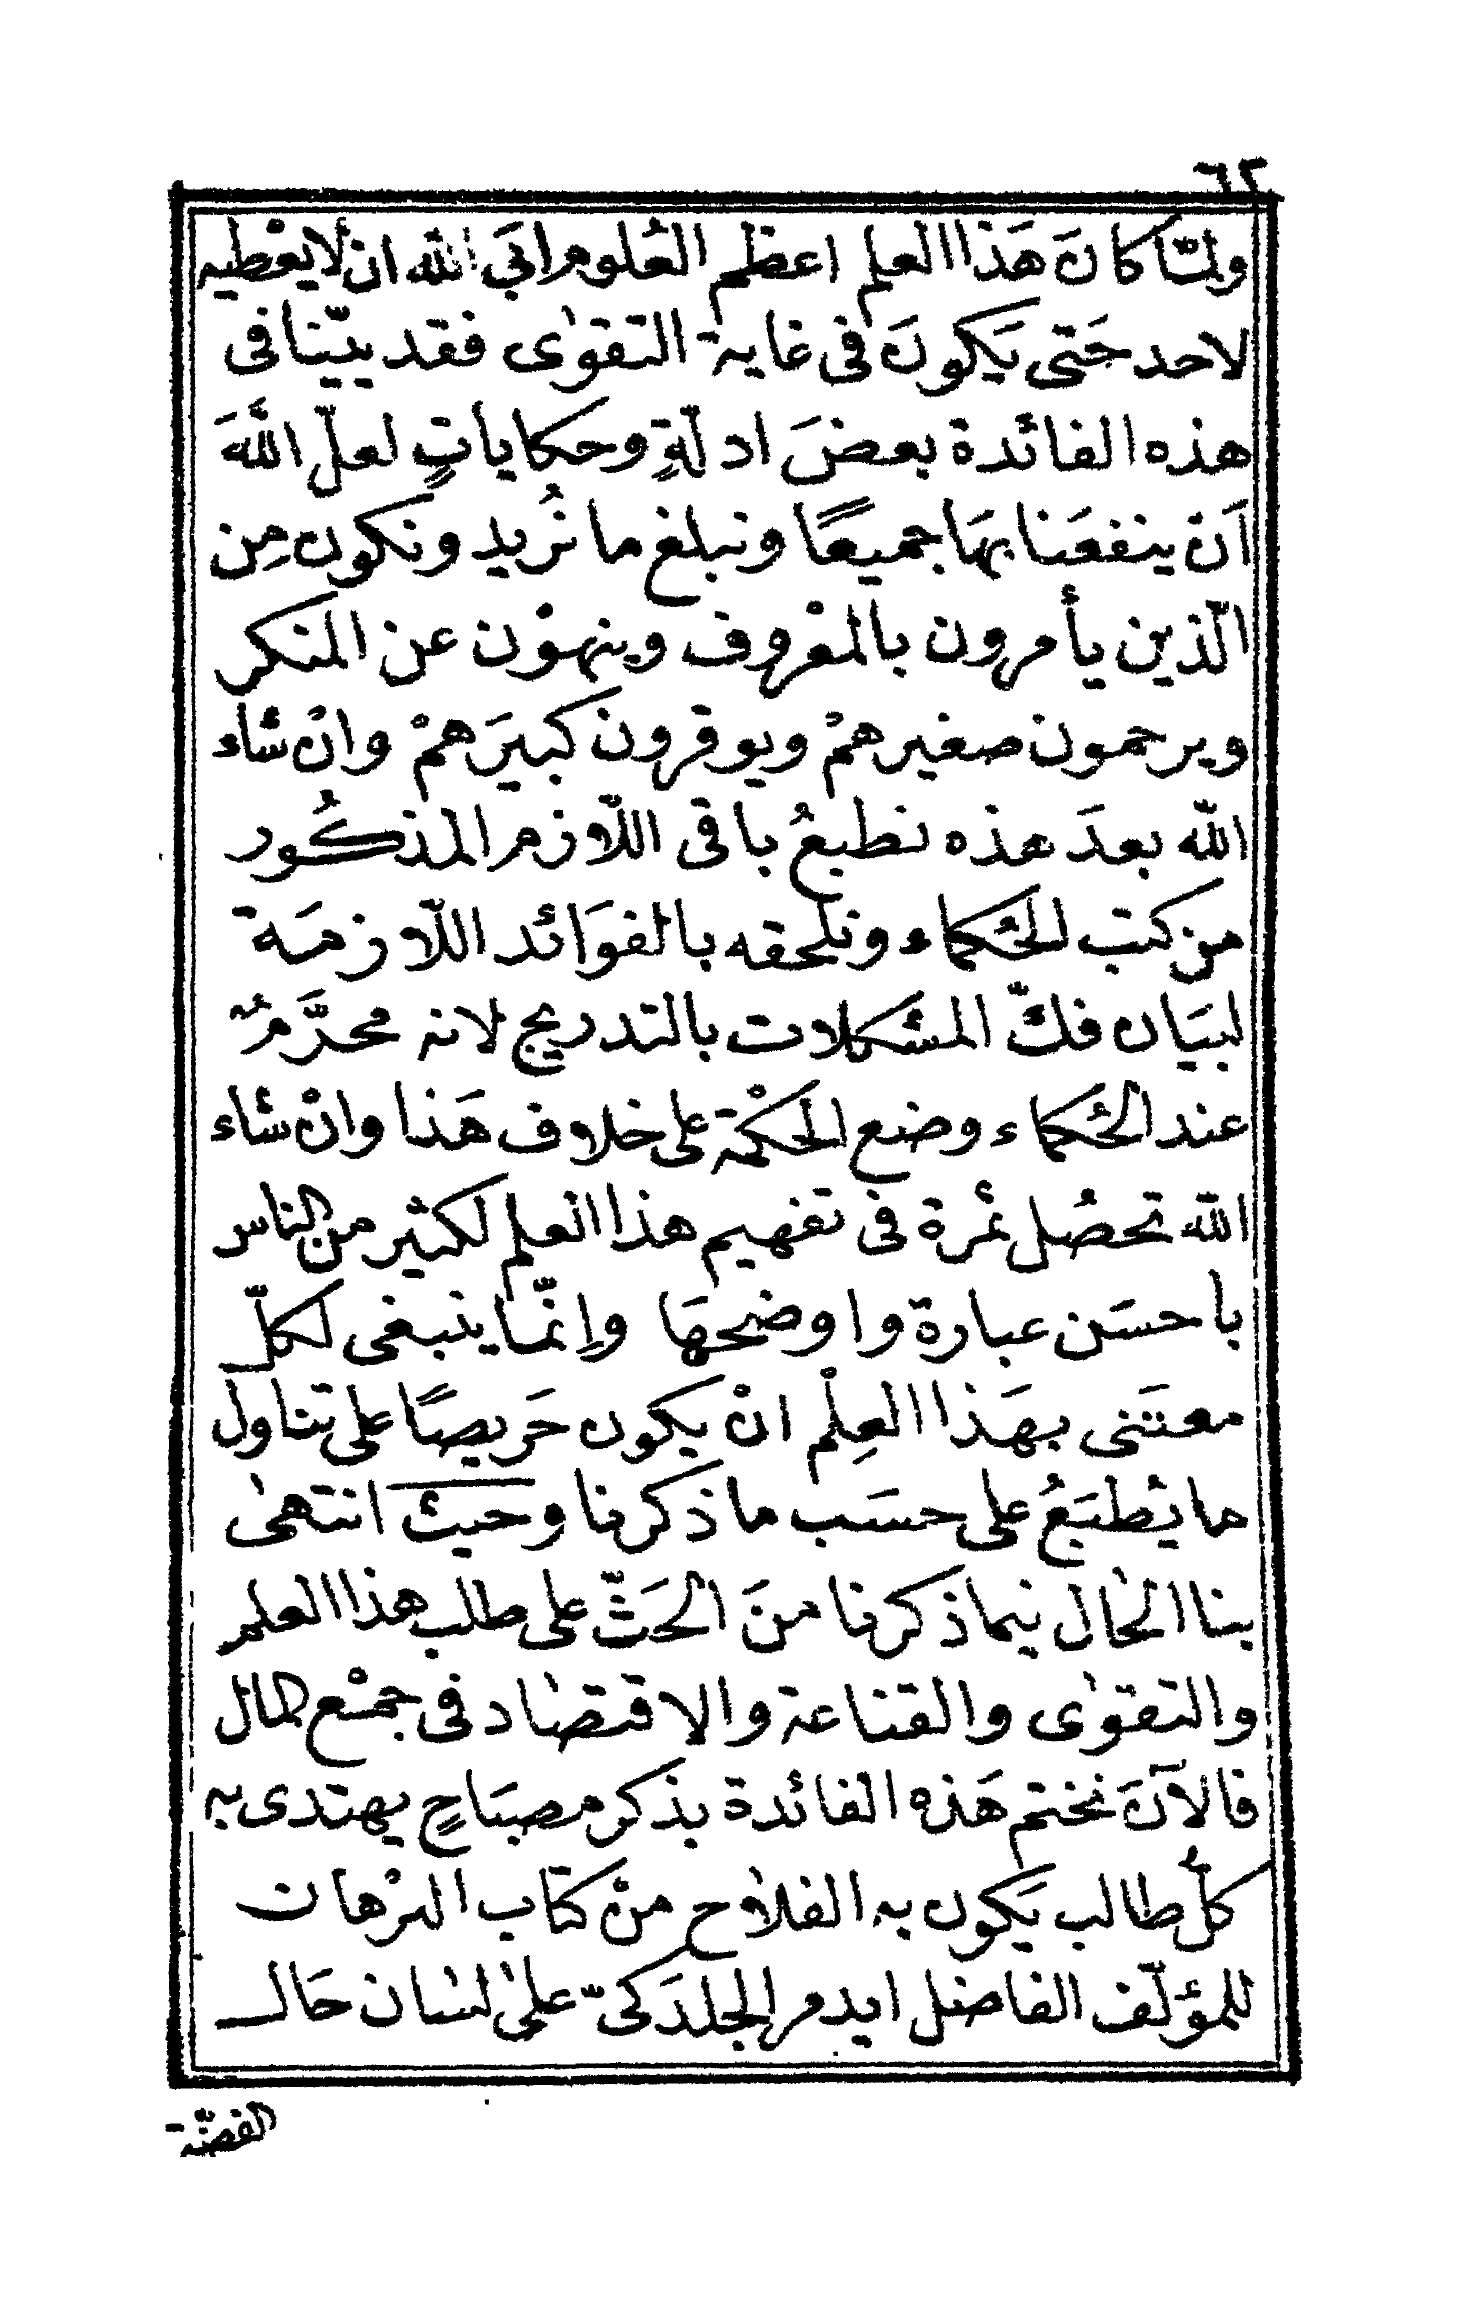 ٦٢
ولمّا كانَ هَذا العلم اعظم العُلوم ابَى الله انْ لا يعْطيه
لاحد حَتى يَكونَ فى غاية التقوٰى فقد بيّنا فى
هذه الفائدة بعضَ ادلّةٍ وحكاياتٍ لعلّ اللَّهَ
اَن ينفعَنا بهَا جميعًا ونبلغ ما نُريد ونكون مِن
الّذين يأمرون بالمعْروف وينهوْن عن المنكر
ويرحمون صغيرهمْ ويوقرون كبيَرهمْ وانْ شاء
الله بعدَ هذه نطبعُ باقى اللّازم المذكُور
من كتب الحُكماء ونلحقه بالفوَائد اللّازمَة
لبيَان فكّ المشكلات بالتدريج لانه محرَّمٌ
عند الحُكماء وضع الحكمْة على خلاف هَذا وانْ شاء
الله تحصُل ثمرة فى تفهيم هذا العلم لكثير من الناس
باحسَن عبارة واوضحهَا وإنّما ينبغى لكلّ
معتَنى بهَذا العِلْم انْ يكون حَريصًا على تناول
ما يُطبَعُ على حسَب ما ذكرنا وحيث انتهىٰ
بنا الحٰال فيما ذكرنا منَ الحَثّ على طلب هذا العلم
والتقوٰى والقناعة والاقتصٰاد فى جمْع المال
فالآنَ نختم هَذه الفائدة بذكر مصبَاحٍ يهتدى به
كلُّ طالب يَكون به الفلاٰح منْ كتاب البرْهان
للمؤلّف الفاضل ايدمر الجلدَكىّ علىٰ لسٰان حَال
الفضّة